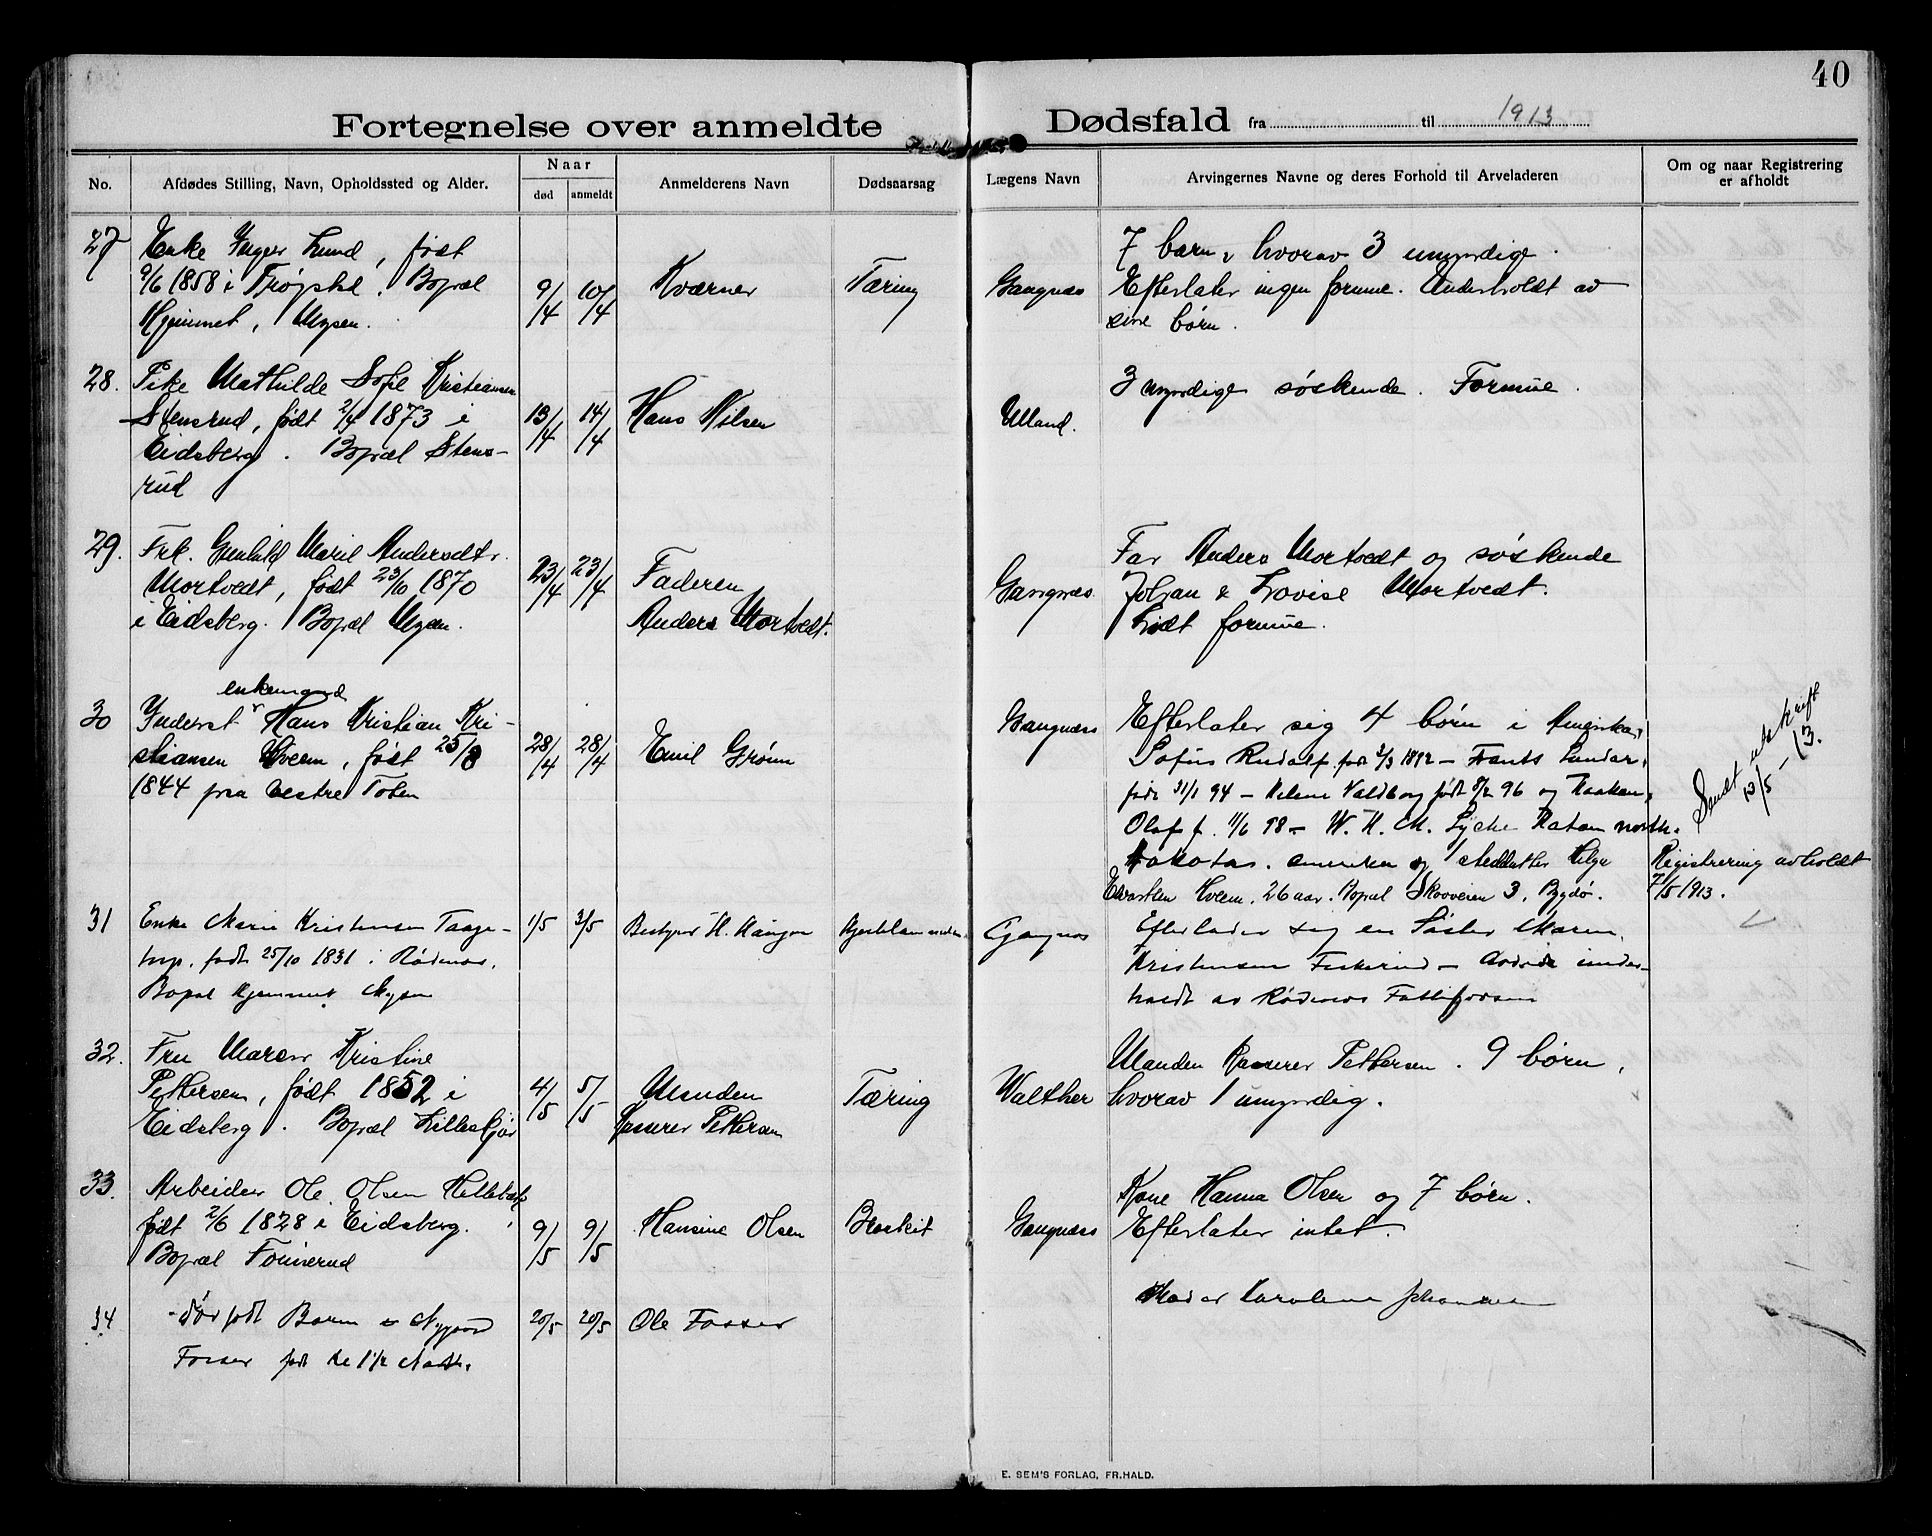 40
Fortegnelse over anmeldte Dødsfald fra til 1913
No.
Afdødes Stilling, Navn, Opholdssted og Alder.
Naar
død
anmeldt
Anmelderens Navn
Dødsaarsag
Lægens Navn
Arvingernes Navne og deres Forhold til Arveladeren
Om og naar Registrering
er afholdt
27
Enke Inger Lund, født
9/6 1858 i Trøgstad. Bopæl
Hjemmet, Mysen.
9/4
10/4
Kværner
Tæring
Gangnæs
7 barn, hvorav 3 umyndige.
Efterlater ingen formue. Underholdt av
sine børn.
28.
Pike Mathilde Sofie Kristiansen
Stensrud, født 2/4 1873 i
Eidsberg. Bopæl Stens-
rud
13/4
14/4
Hans Nilsen
Ulland.
3 myndige søskende. Formue.
29.
Frk. Gunhild Marie Andersdtr.
Mortvedt, født 23/10 1870
i Eidsberg. Bopæl Mysen.
23/4
23/4
Faderen
Anders Mortvedt.
Gangnæs
Far Anders Mortvedt og søskende
Johan & Lovise Mortvedt.
Lidt formue.
30
enkemand
Inderst Hans Kristian Kri-
stiansen Hveem, født 25/8
1844 fra vestre Toten
28/4
28/4
Emil Grønn
Gangnæss
Efterlater sig 4 børn i Amerika,
Sofus Rudolf 1892 –
født 31/1 94 – Valdborg født 96 og Haakon
Olaf f. 11/6 98 – W. H. M. north.
Dakota. og 1 Helga
Hveem, 26 aar. Bopæl Skovveien 3, Bygdø.
Sendt utskrift
13/5 – 13.
Registrering avholdt
7/5 1913.
31
Enke Marie Kristensen Taage-
trup, født 25/10 1831 i Rødenæs.
Bopæl Hjemmet Mysen
1/5
3/5
Bestyrer H.
Gangnæs
Efterlader sig en Søster Maren
Kristensen – under-
holdt av Rødenes
32.
Fru Maren Kristine
Pettersen, født 1852 i
Eidsberg. Bopæl
4/5
5/5
Manden
Kasserer Pettersen
Tæring
Walther
Manden Kasserer Pettersen. 9 børn,
hvorav 1 umyndig.
33.
Arbeider Ole Olsen
født 2/6 1828 i Eidsberg.
Bopæl
9/5
9/5
Hansine Olsen
Gangnæss
Kone Hanna Olsen og 7 børn.
Efterlater intet.
34
dødfødt Barn
Fosser født kl 1½ Natt.
20/5
20/5
Ole Fosser
Moder Karoline Johansen
E. SEM'S FORLAG, FR.HALD.